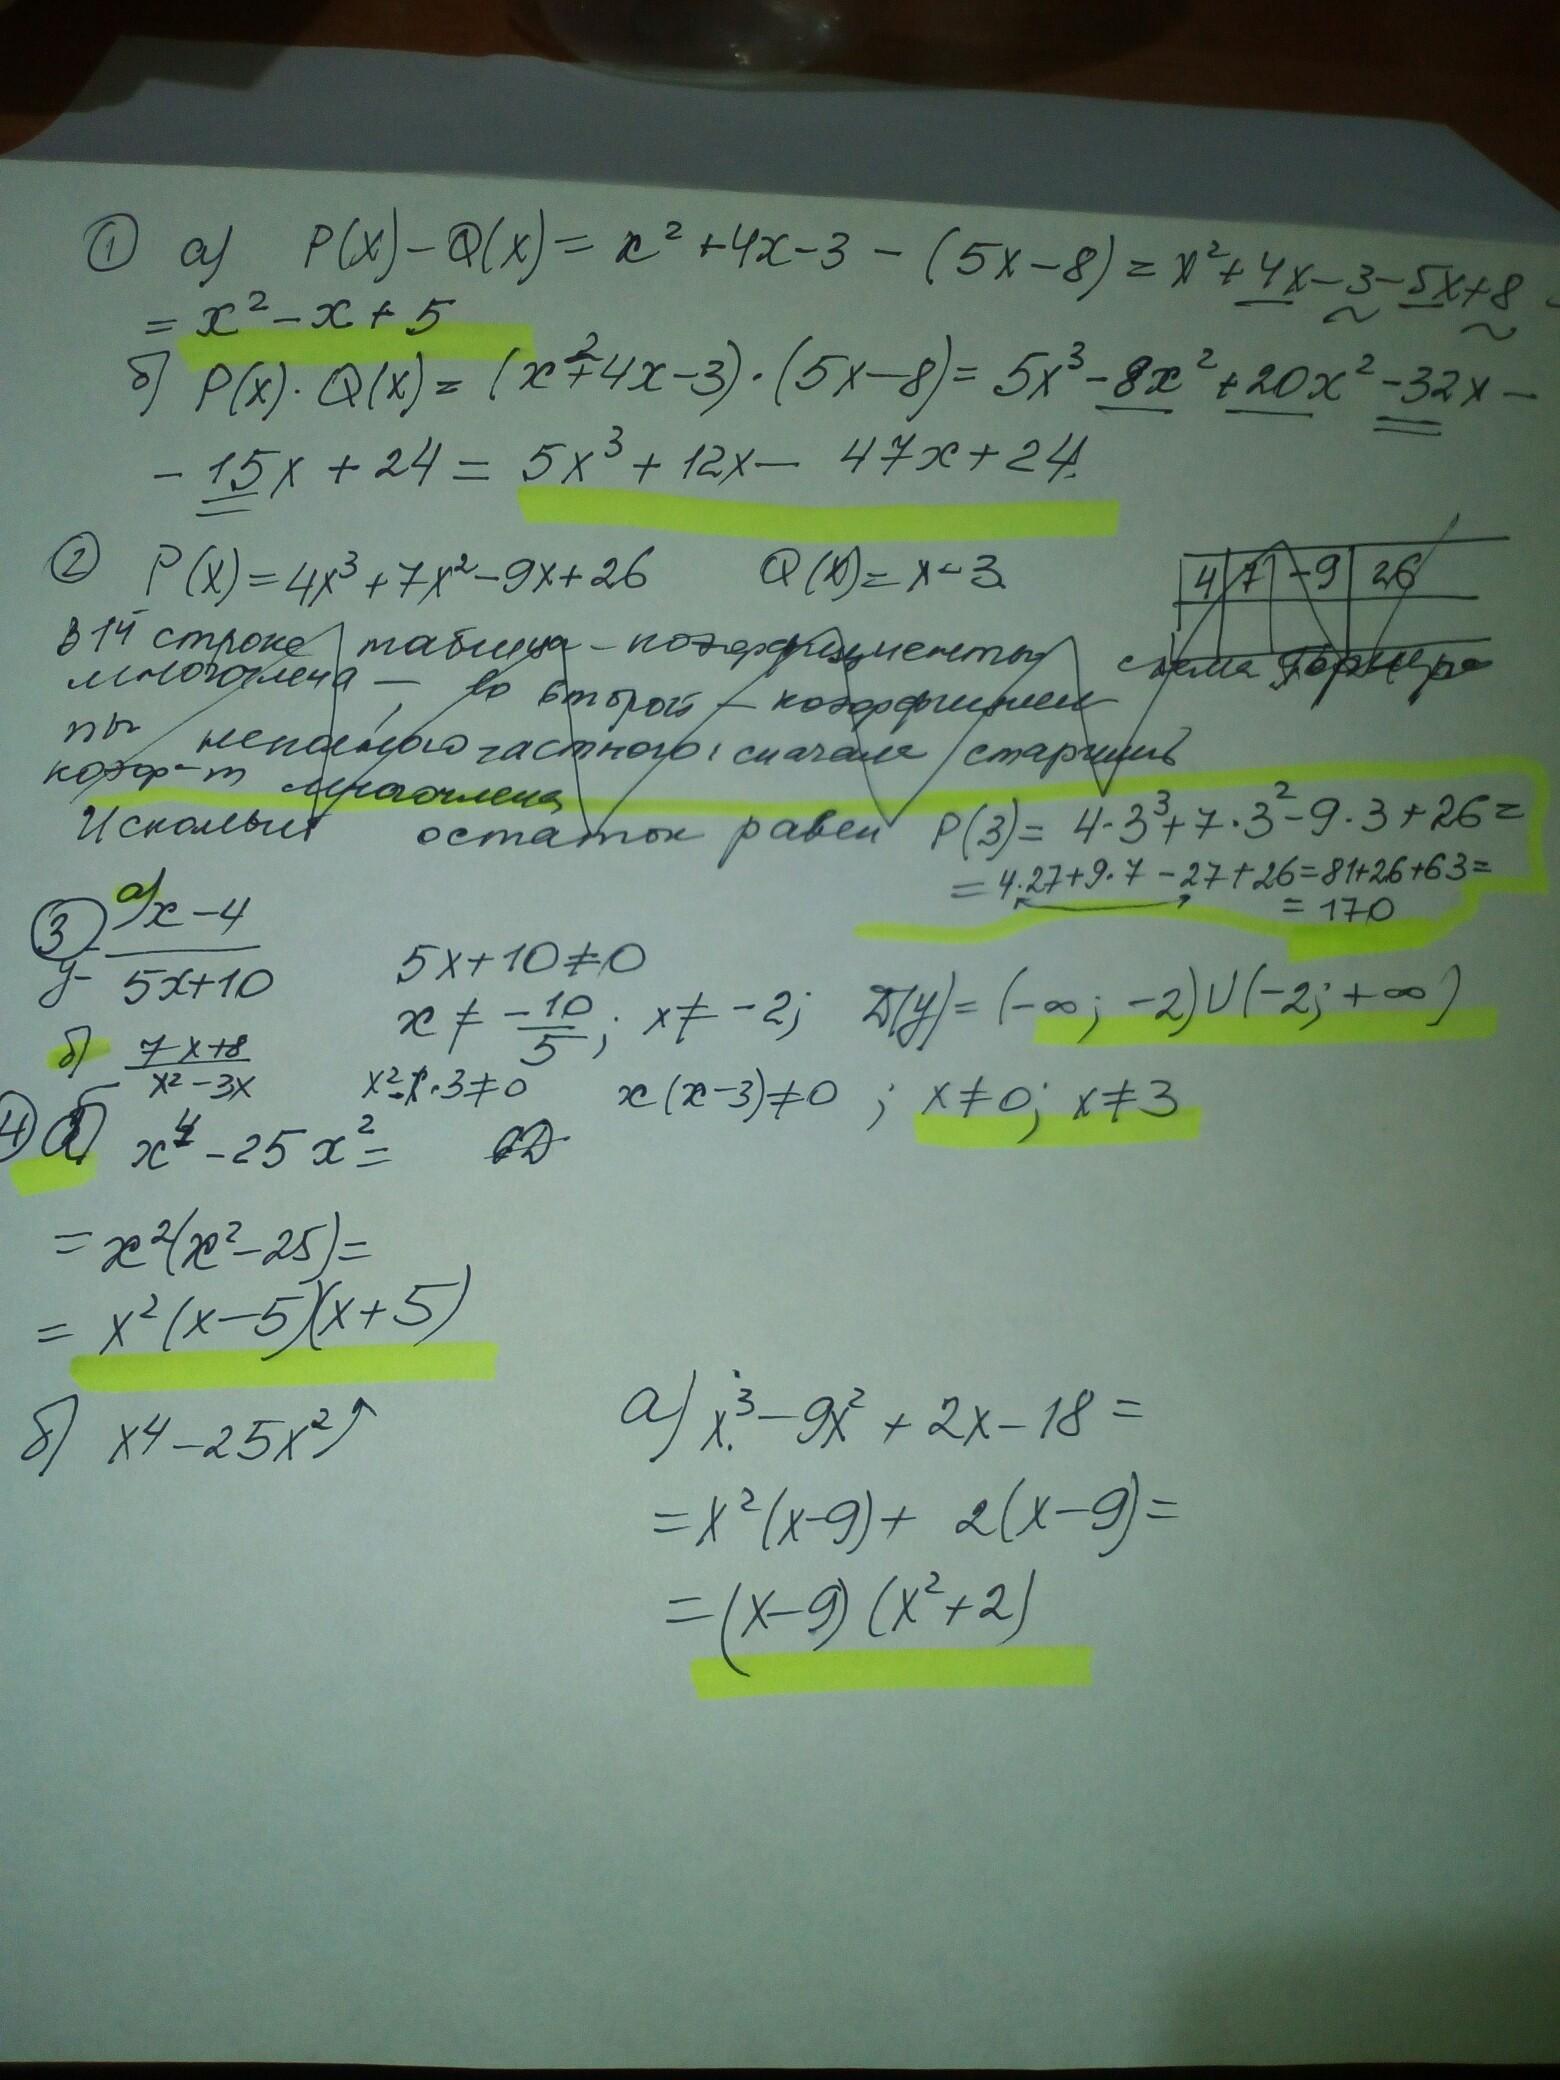 ① а) P(x)-Q(x)= x²+4x-3-(5x-8)=x²+4x-3-5x+8=
=x²-x+5
б) P(x)·Q(x)=(x²+4x-3)·(5x-8)=5x³-8x²+20x²-32x-
-15x+24=5x³+12x-47x+24.
② P(x)=4x³+7x²-9x+26 Q(x)=x-3
4 7 -9 26
в 1й строке таблица - коэффициенты
многочлена -, во второй - коэффициен
ты неполного частного: сначала старший
коэф-т многочлена
схема Горнера
Искомый остаток равен P(3)=4·3³+7·3²-9·3+26=
=4·27+9·7-27+26=81+26+63=
=170
③ а) y= x-4/5x+10 5x+10≠0
x≠-10/5; x≠-2; D(y)=(-∞; -2)U(-2; +∞)
б) 7x+8/x²-3x x²-x·3≠0 x(x-3)≠0; x≠0; x≠3
④ б) x⁴-25x²=
=x²(x²-25)=
=x²(x-5)(x+5)
б) x4-25x²↑
а) x³-9x²+2x-18=
=x²(x-9)+2(x-9)=
=(x-9)(x²+2)